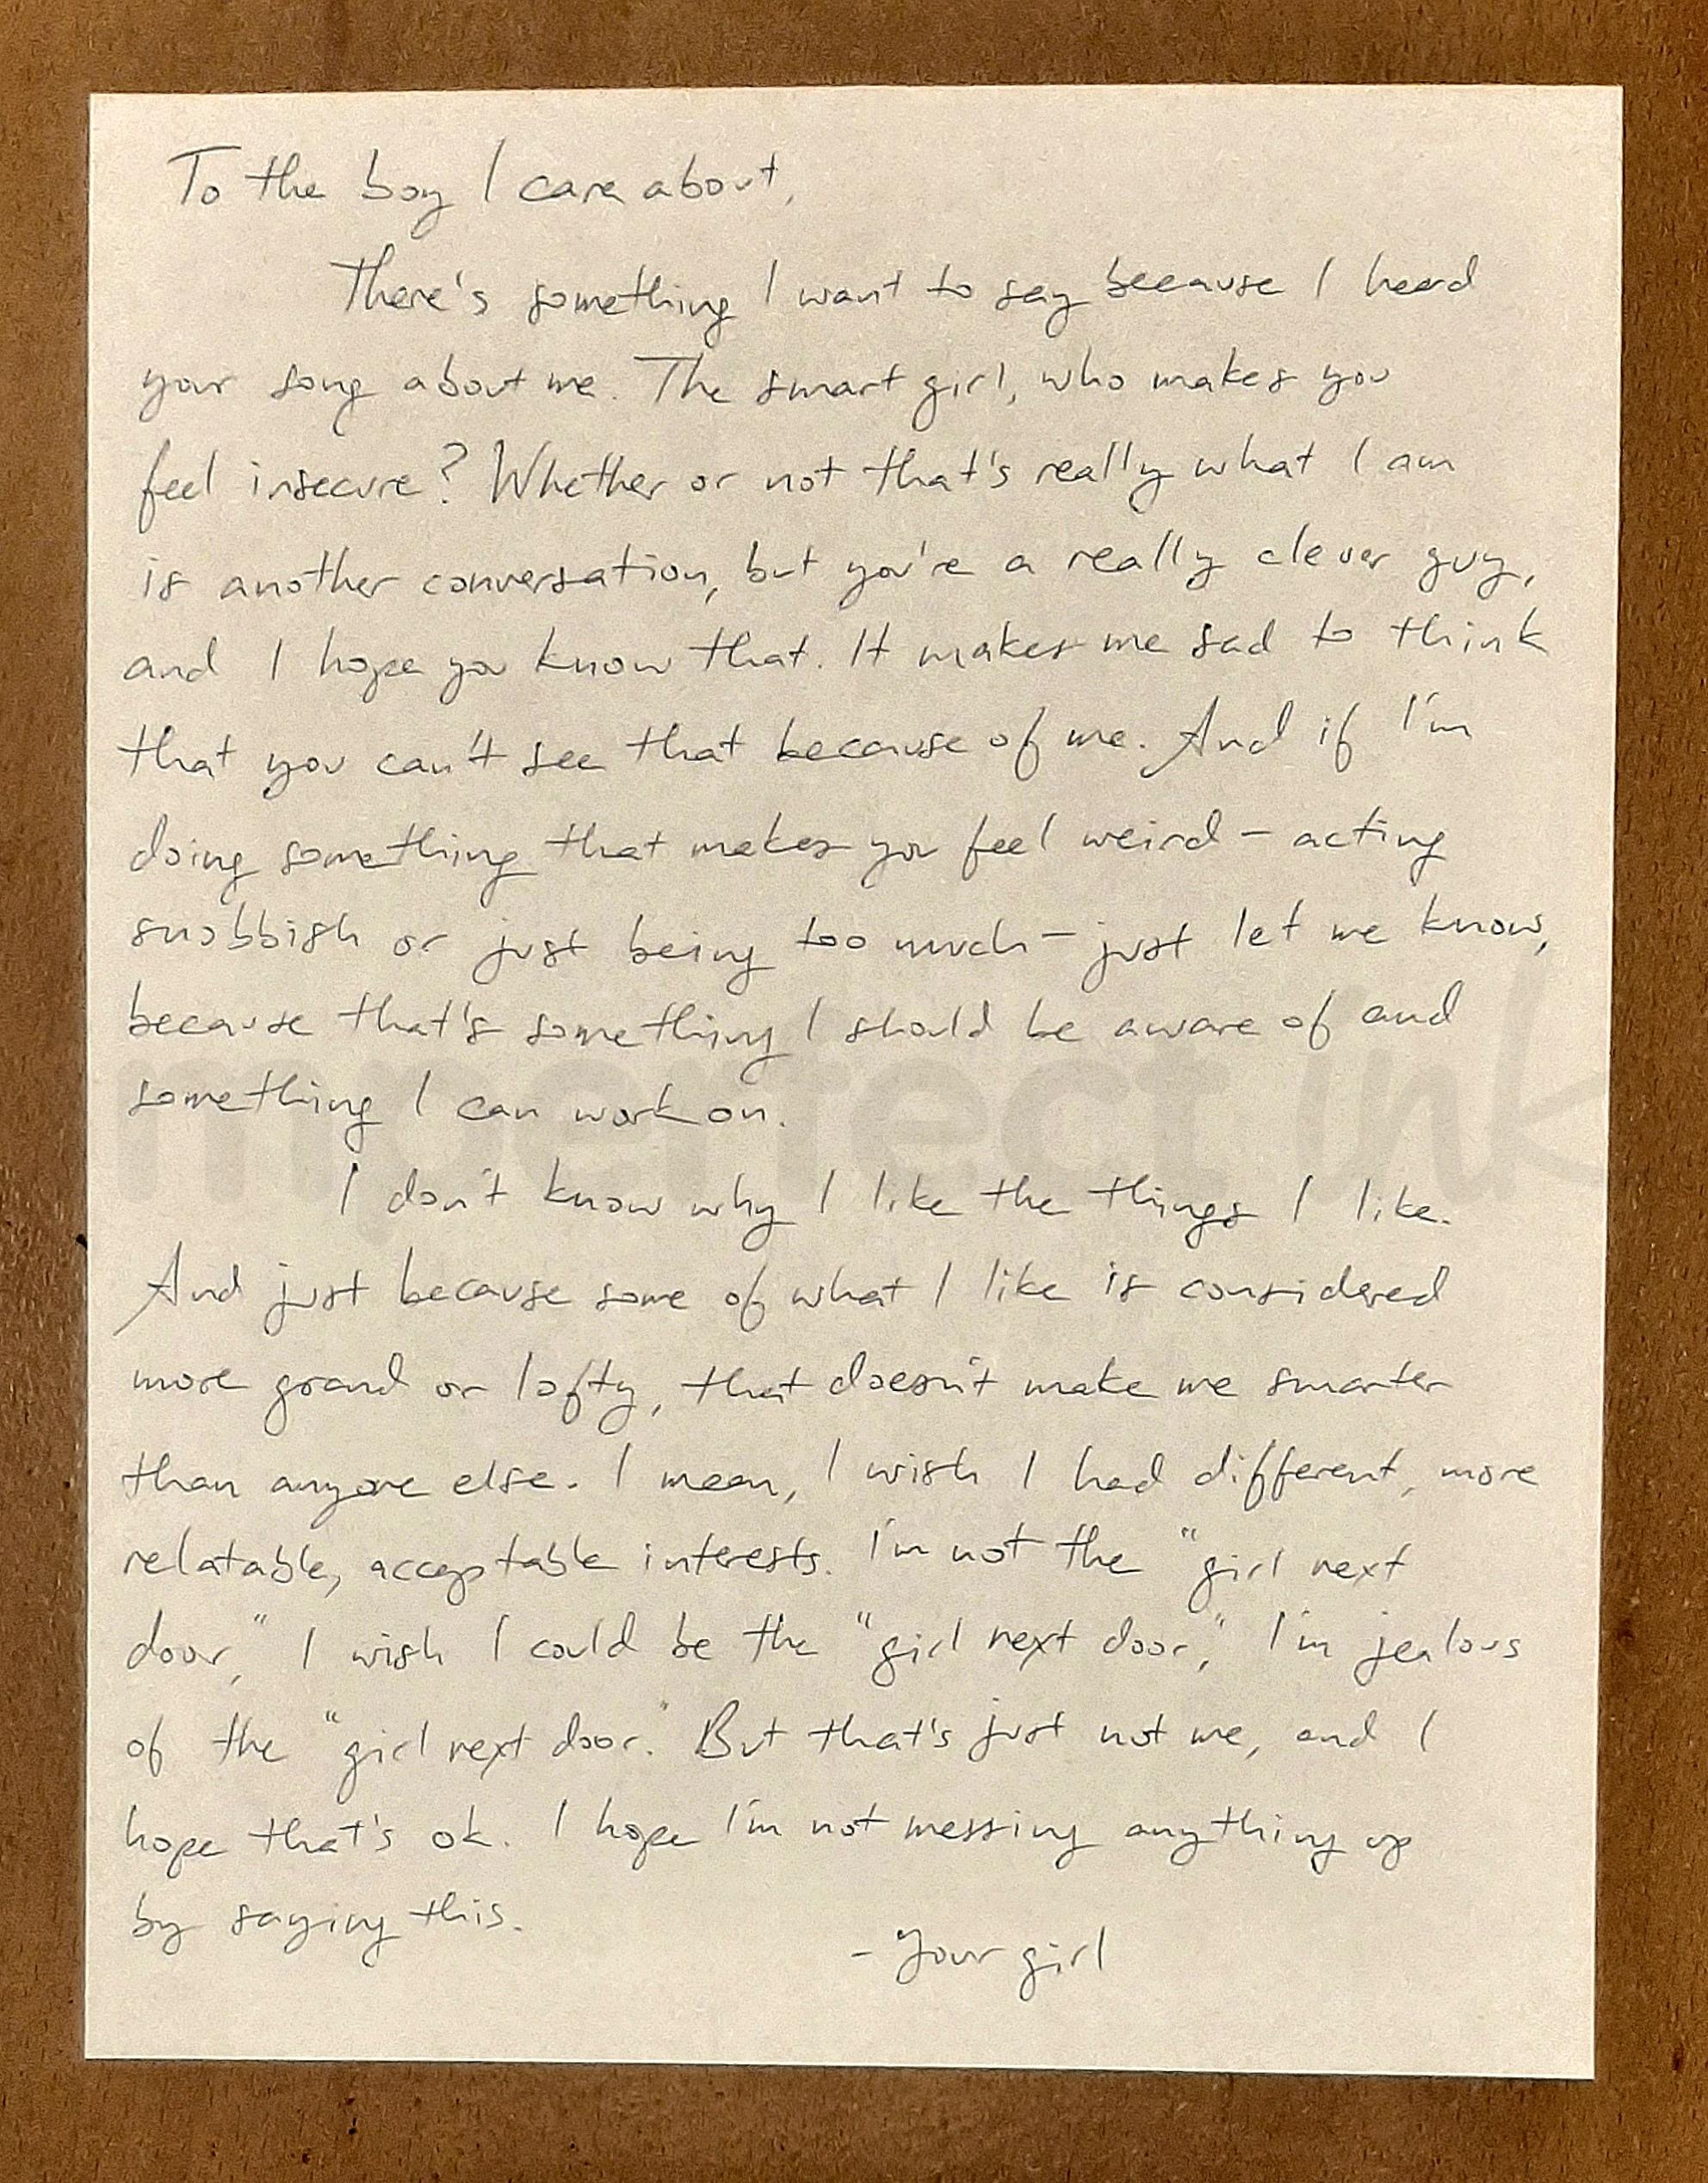 To the boy I care about,
There's something I want to say because I heard
your song about me. The smart girl, who makes you
feel insecure? Whether or not that's really what I am
is another conversation, but you're a really clever guy,
and I hope you know that. It makes me sad to think
that you can't see that because of me. And if I'm
doing something that makes you feel weird – acting
snobbish or just being too much – just let me know,
because that's something I should be aware of and
something I can work on.
mperfect ink
I don't know why I like the things I like.
And just because some of what I like is considered
more grand or lofty, that doesn't make me smarter
than anyone else. I mean, I wish I had different, more
relatable, acceptable interests. I'm not the "girl next
door," I wish I could be the "girl next door," I'm jealous
of the "girl next door." But that's just not me, and I
hope that's ok. I hope I'm not messing anything up
by saying this.
- Your girl